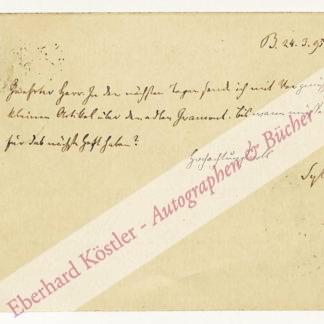 B. 24. 3. 95
Geehrter Herr. In den nächsten Tagen sende ich mit Vergnügen
kleinen Artikel über den edlen Gramont. Bis wann müssen
für das nächste Heft haben?
Hochachtungsvoll
Eberhard Köstler - Autographen & Bücher